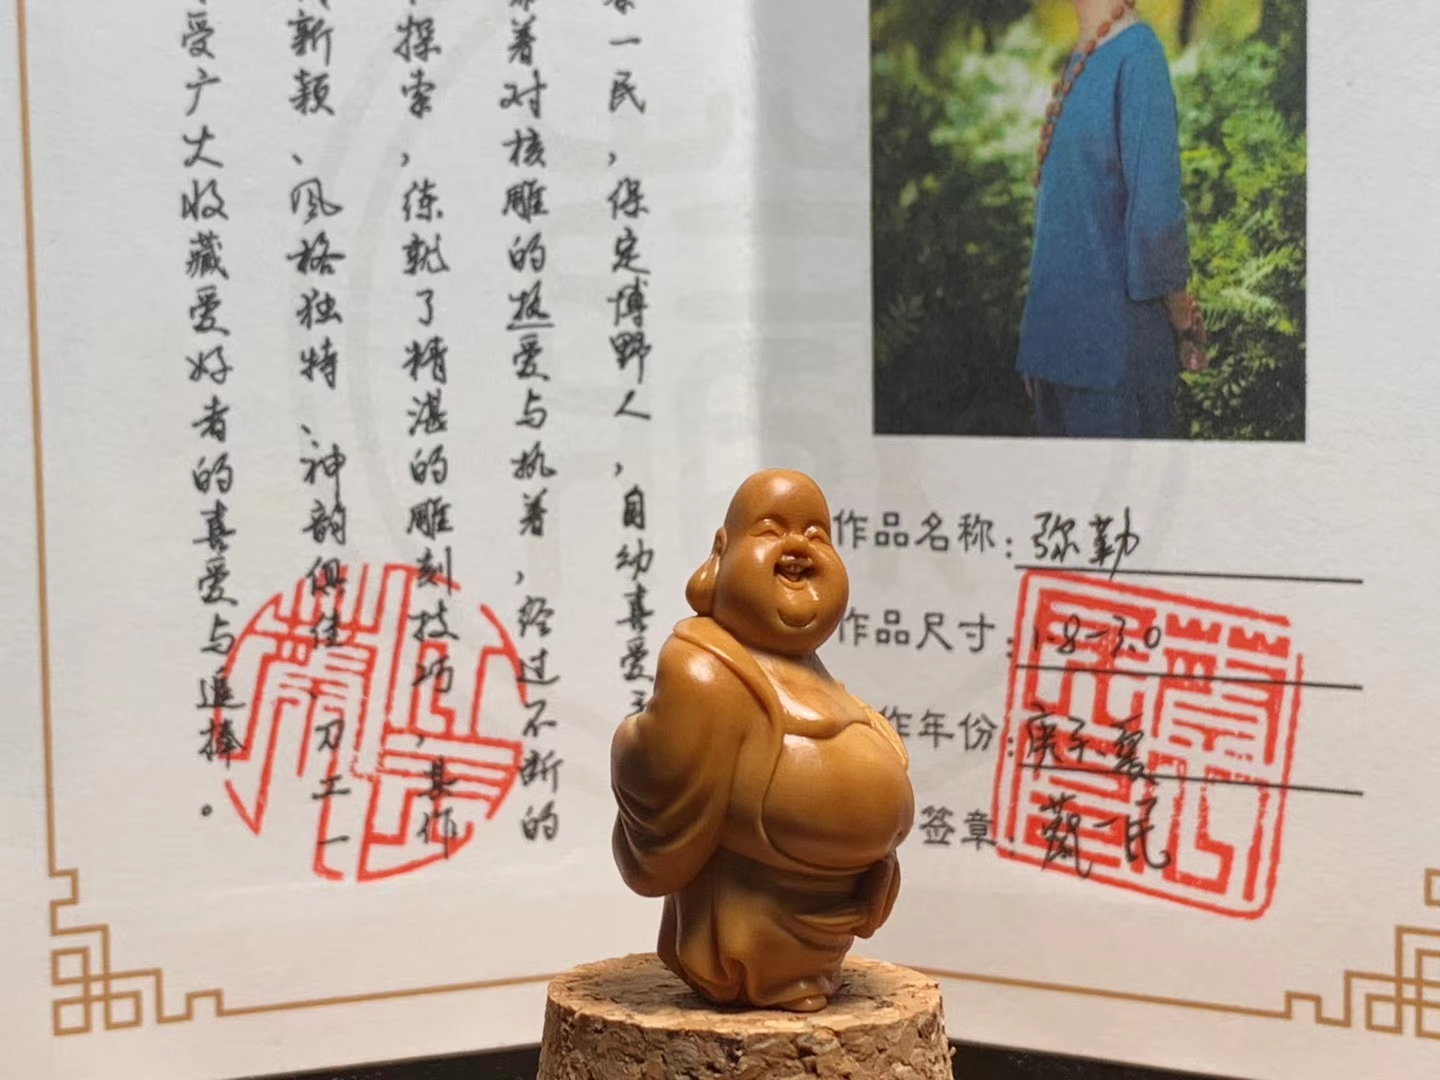 一民，保定博野人，自幼喜爱
着对核雕的热爱与执着，经过不断的
探索，练就了精湛的雕刻技巧，其作
新颖、风格独特、神韵俱佳、刀工一
受广大收藏爱好者的喜爱与追捧。
作品名称：弥勒
作品尺寸：1.8-3.0
作年份：庚子夏
签章：蔡一民